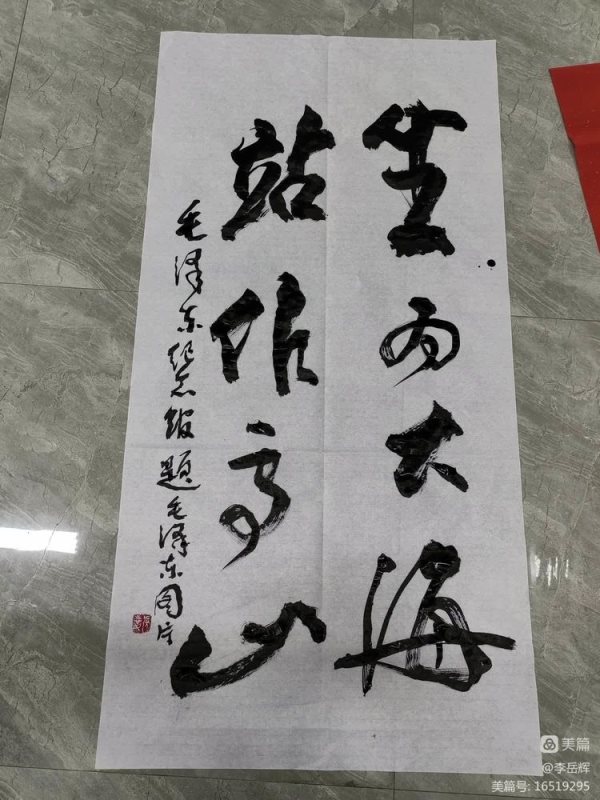 坐为大海
站作高山
毛泽东纪念馆题毛泽东图片
美篇
@李岳辉
美篇号: 16519295